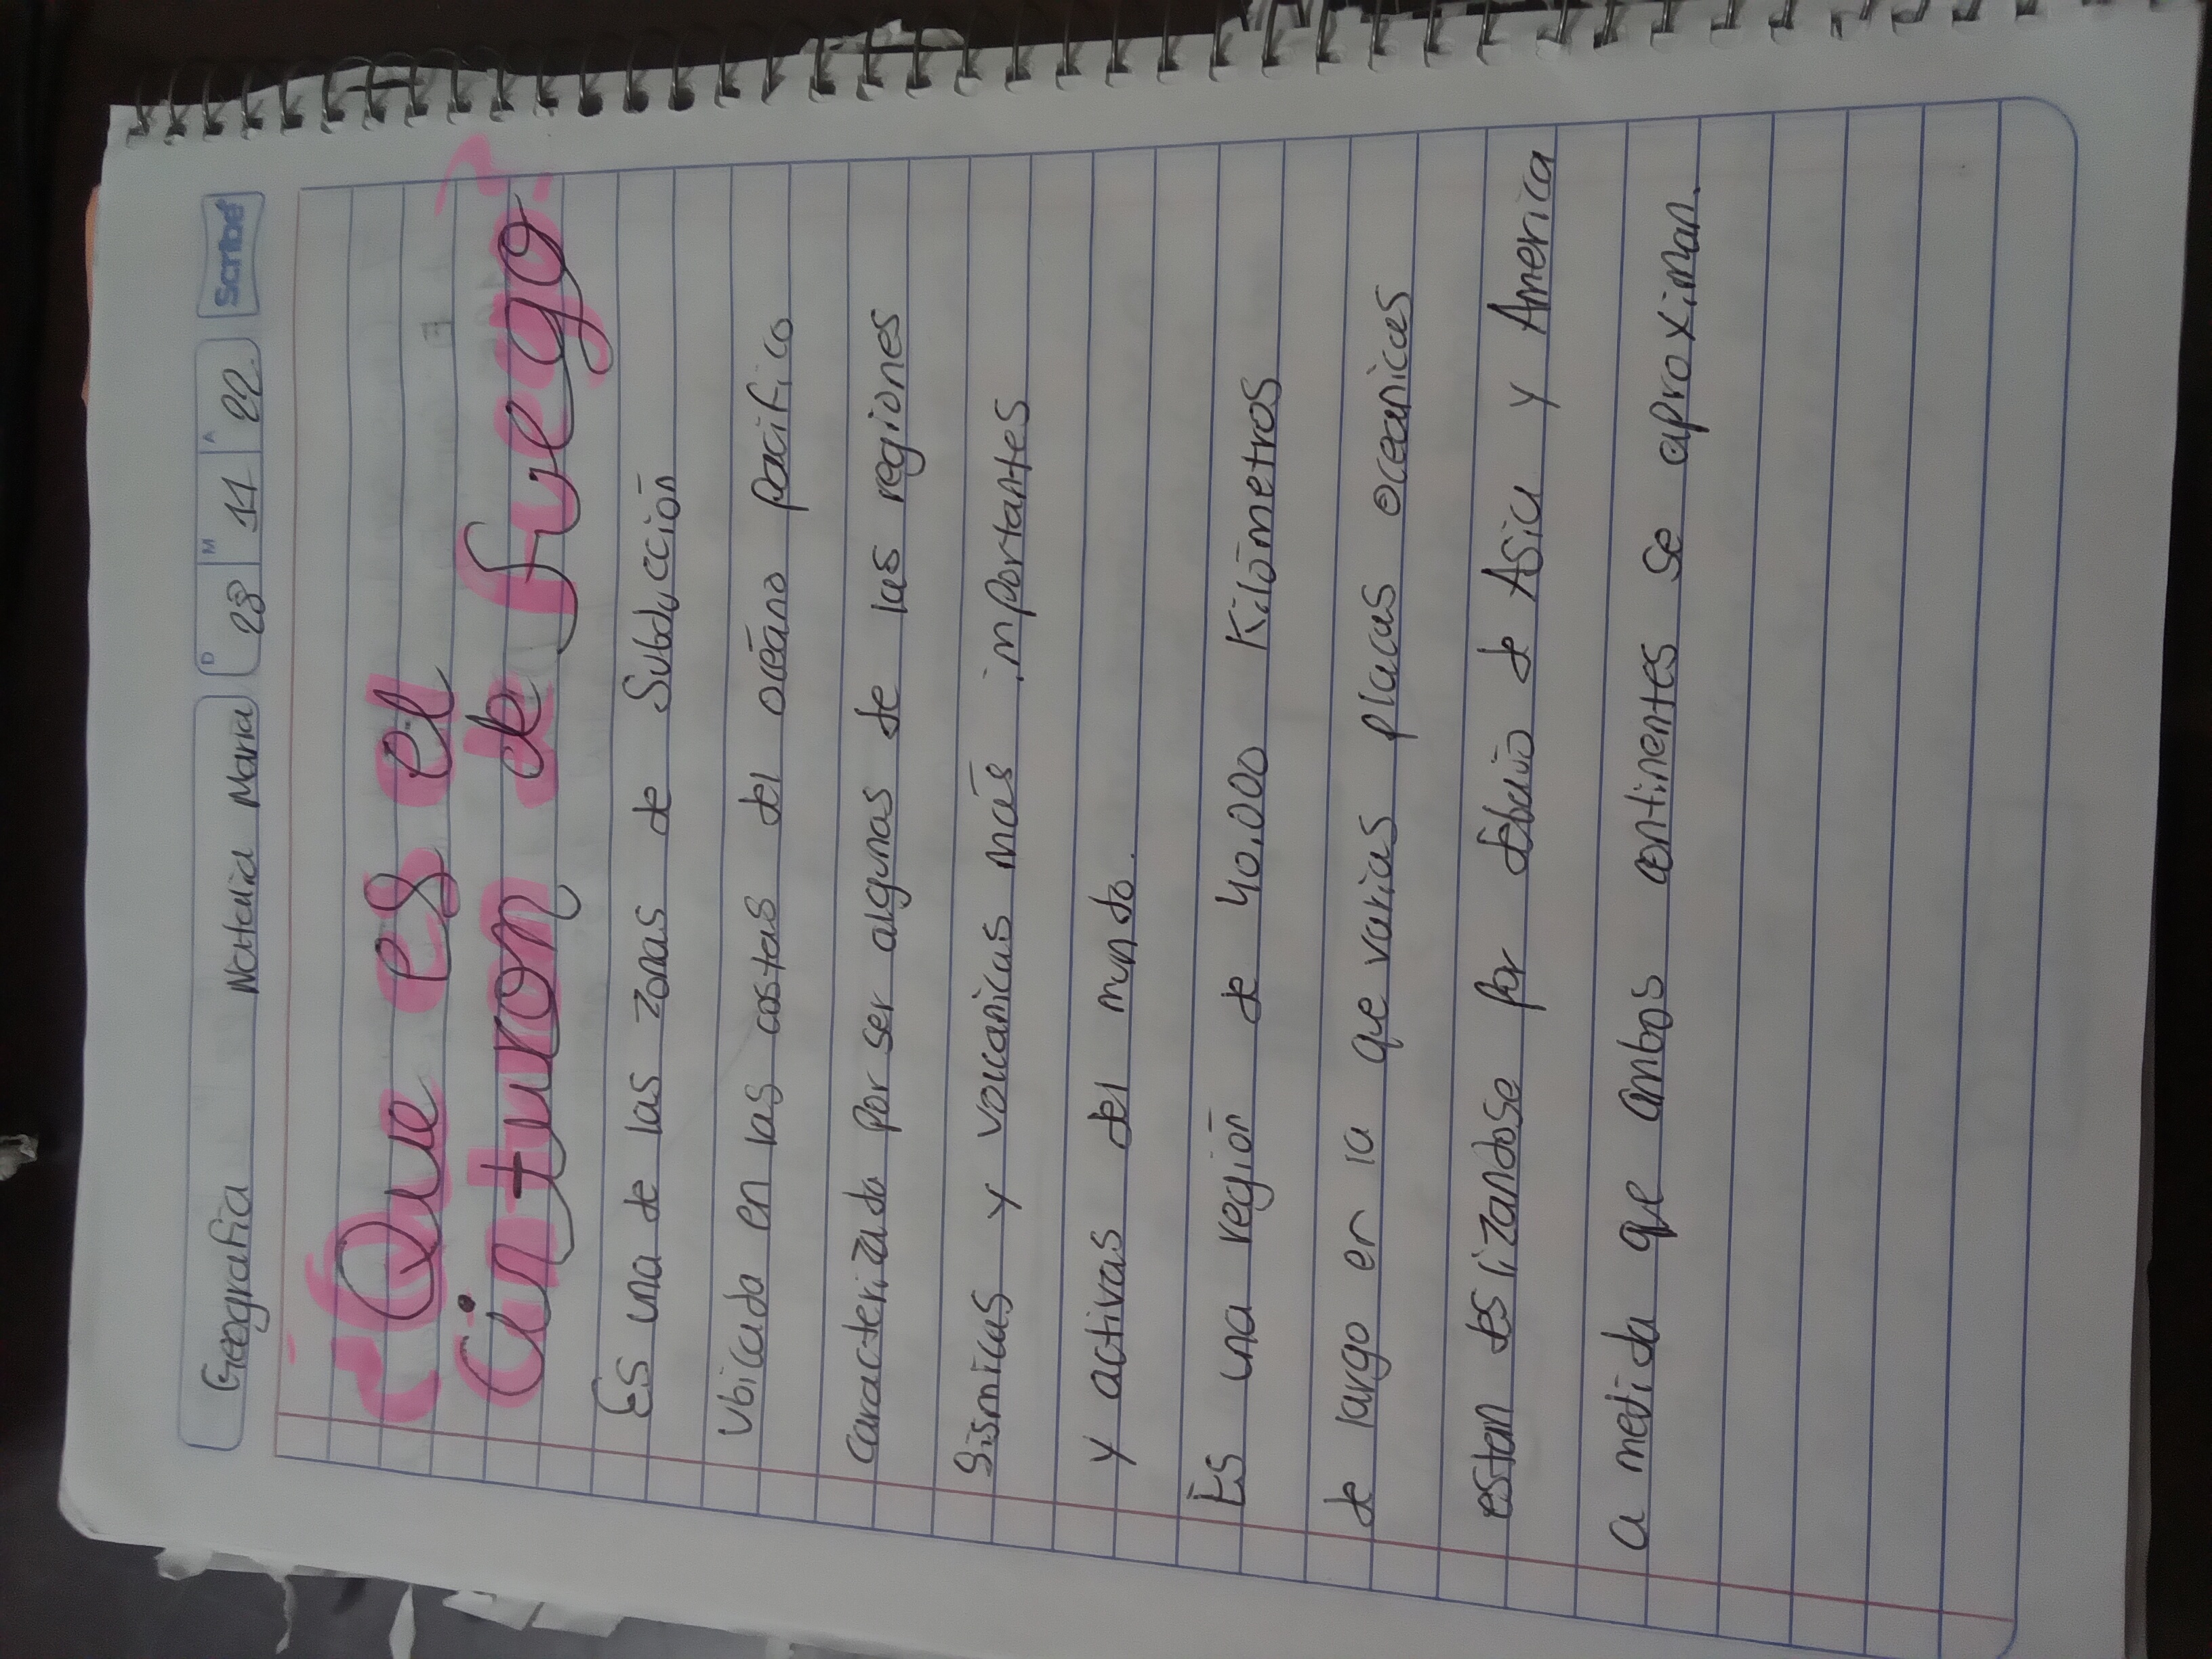 Geografía Natalia María D 28 M 11 A 22. Scribe
¿Que es el
Cinturon de fuego?
Es una de las zonas de Subducción
Ubicada en las costas del océano pacifico
Caracterizada por ser algunas de las regiones
Sismicas y volcanicas más importantes
y activas del mundo.
Es una región de 40.000 Kilómetros
de largo en la que varias placas oceanicas
estan deslizandose por debajo de Asia y America
a medida que ambos continentes se aproximan.